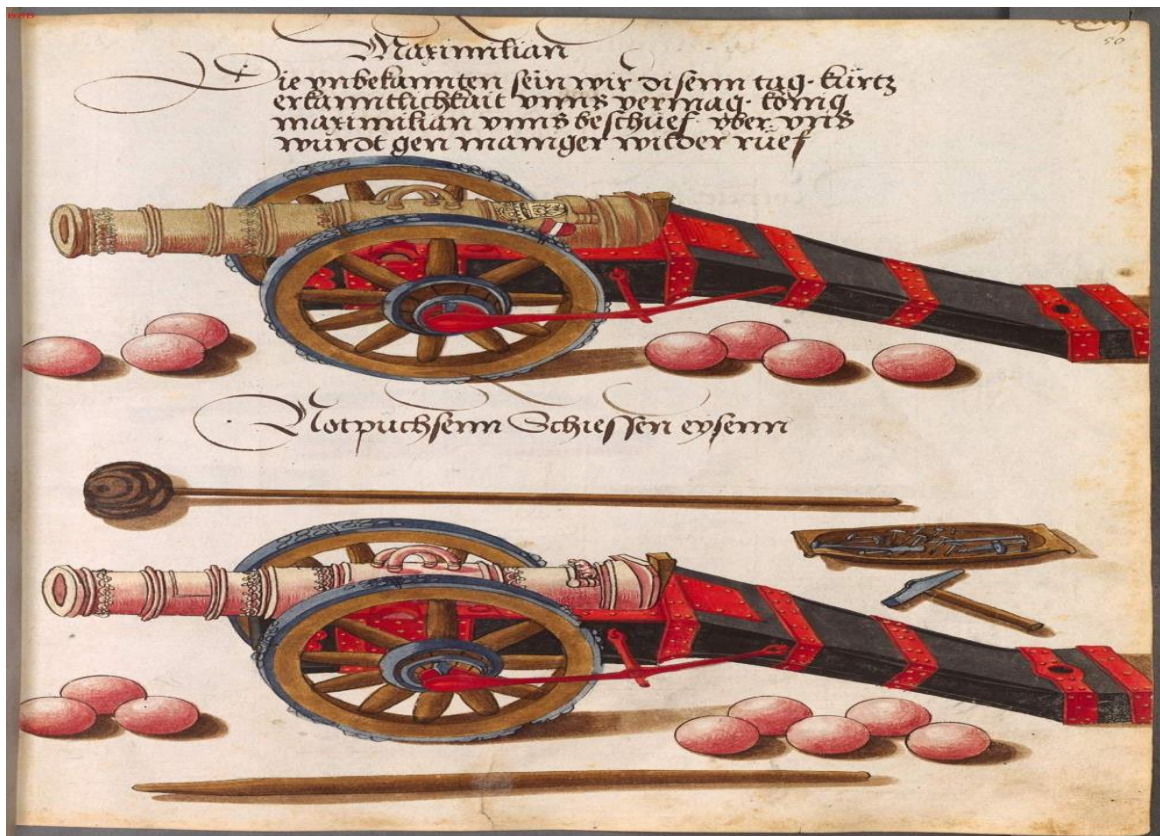 Maximilian
Die vnbekannten sein wir disenn tag · kurtz
erkanntlichkait vnns vermag · König
maximilian vnns beschuef vber vnns
wurdt gen maniger wilder rüef
Notpuchsenn Schiessen eysenn
50